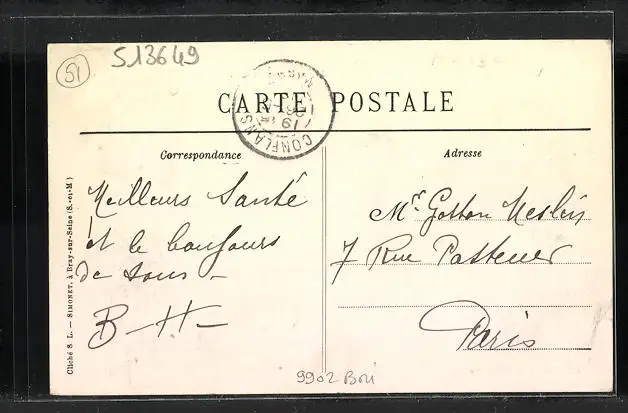 51
S13649
CARTE POSTALE
CONFLANS
MARNE
19
Correspondance
Adresse
Meilleurs Santé
et le bonjours
de tous -
B - H -
Mr Meslin
7 Rue Pasteur
Paris
Cliché S. L. — SIMONET, à Bray-sur-Seine (S.-et-M)
9902 Bon